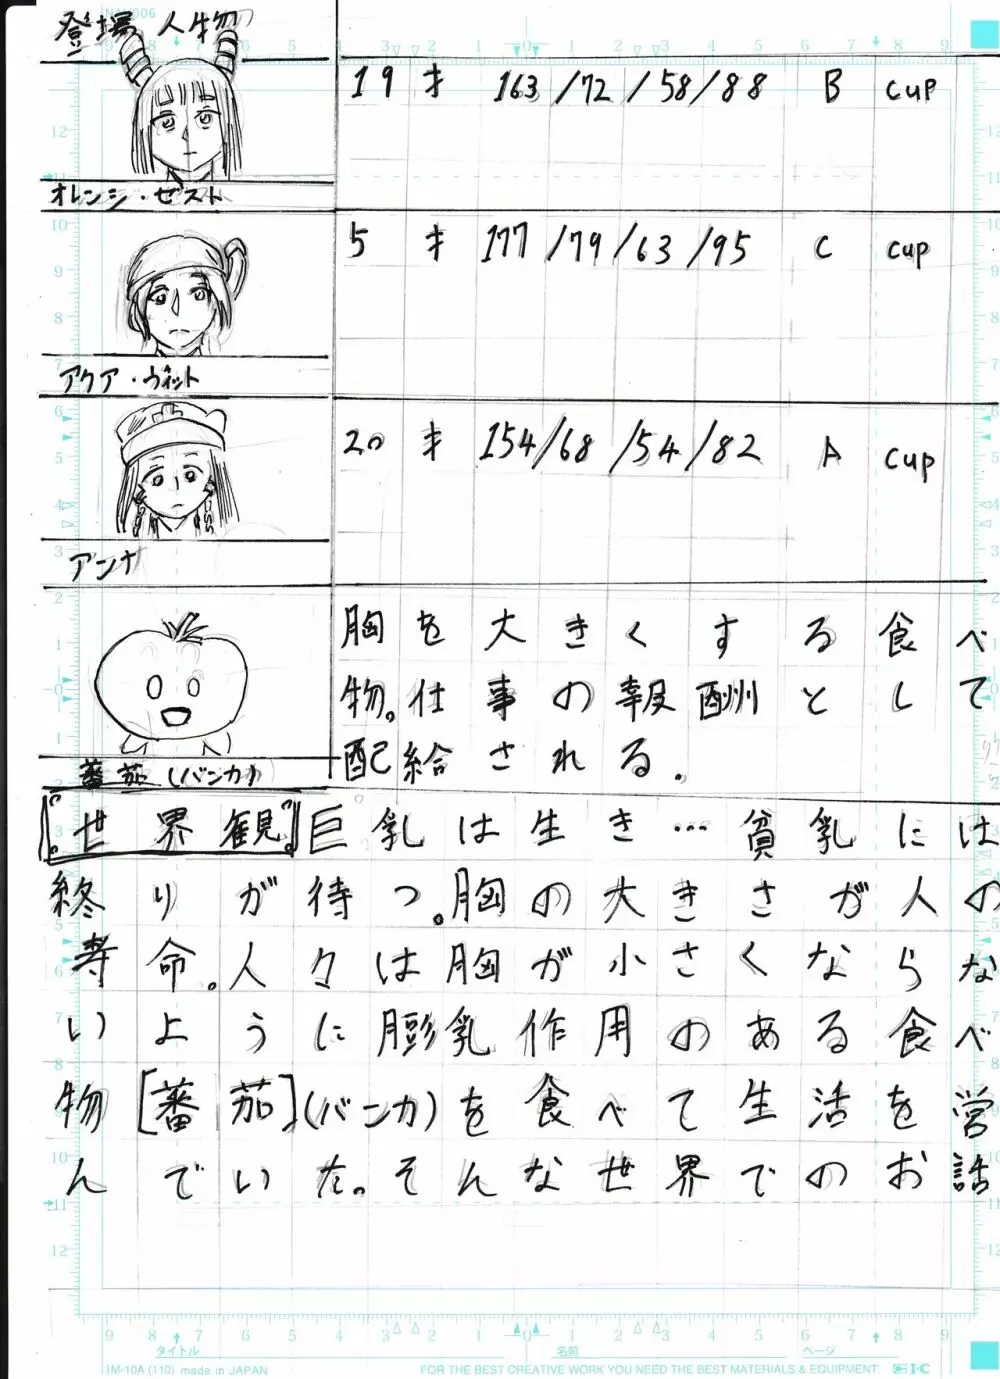 登場 人物
19才 163/72/58/88 B cup
オレンジ・ゼスト
5才 177/79/63/95 C cup
アクア・ヴィット
20才 154/68/54/82 A cup
アンナ
胸を大きくする食べ
物。仕事の報酬として
配給される。
蕃茄(バンカ)
『世界観』巨乳は生き…貧乳には
終りが待つ。胸の大きさが人の
寿命。人々は胸が小さくならな
いように膨乳作用のある食べ
物[蕃茄](バンカ)を食べて生活を営
んでいた。そんな世界でのお話
タイトル
名前
ページ
IM-10A (110) made in JAPAN
FOR THE BEST CREATIVE WORK YOU NEED THE BEST MATERIALS & EQUIPMENT.
I-C